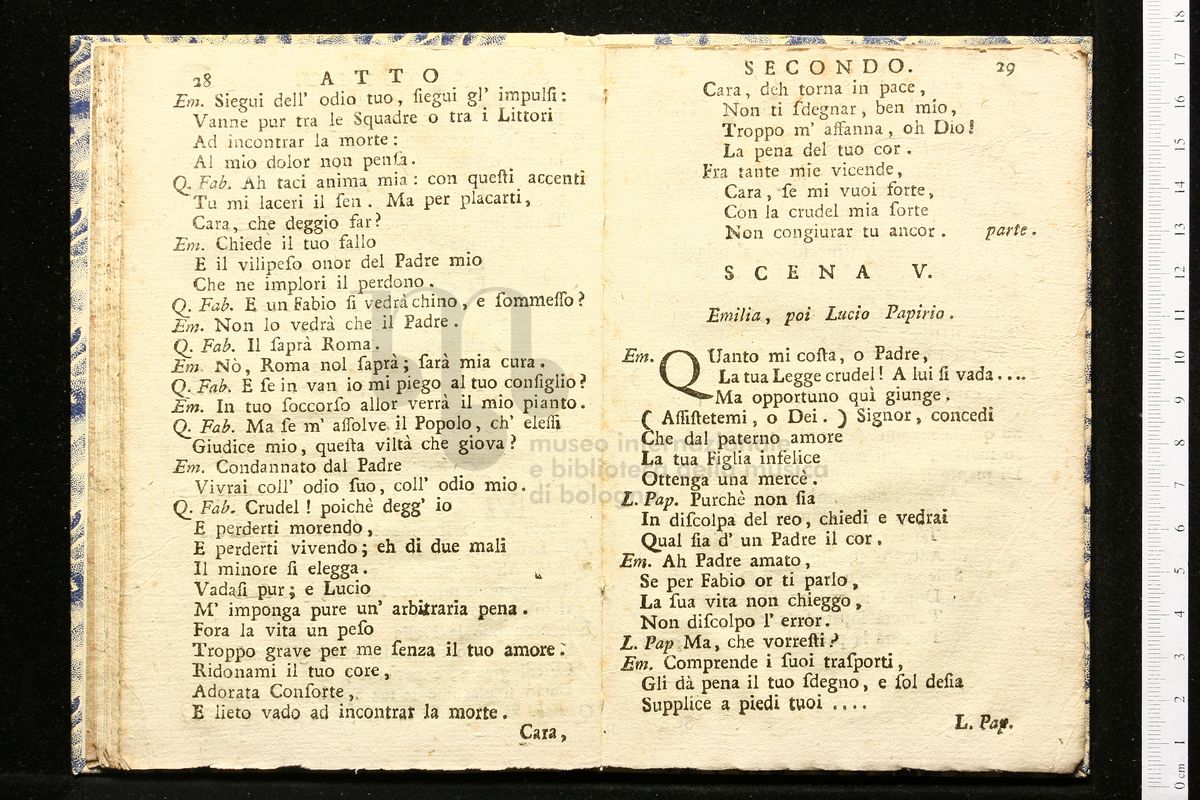 28 ATTO
Em. Siegui dell' odio tuo, ſiegui gl' impulſi:
Vanne pur tra le Squadre o tra i Littori
Ad incontrar la morte:
Al mio dolor non penſa.
Q. Fab. Ah taci anima mia: con queſti accenti
Tu mi laceri il ſen. Ma per placarti,
Cara, che deggio far?
Em. Chiede il tuo fallo
E il vilipeſo onor del Padre mio
Che ne implori il perdono.
Q. Fab. E un Fabio ſi vedrà chino, e ſommeſſo?
Em. Non lo vedrà che il Padre.
Q. Fab. Il ſaprà Roma.
Em. Nò, Roma nol ſaprà; ſarà mia cura.
Q. Fab. E ſe in van io mi piego al tuo conſiglio?
Em. In tuo ſoccorſo allor verrà il mio pianto.
Q. Fab. Ma ſe m' aſſolve il Popolo, ch' eleſſi
Giudice mio, queſta viltà che giova?
Em. Condannato dal Padre
Vivrai coll' odio ſuo, coll' odio mio.
Q. Fab. Crudel! poichè degg' io
E perderti morendo,
E perderti vivendo; eh di due mali
Il minore ſi elegga.
Vadaſi pur; e Lucio
M' imponga pure un' arbitraria pena.
Fora la vita un peſo
Troppo grave per me ſenza il tuo amore.
Ridonami il tuo core,
Adorata Conſorte,
E lieto vado ad incontrar la morte.
Cara,
SECONDO. 29
Cara, deh torna in pace,
Non ti ſdegnar, ben mio,
Troppo m' affanna, oh Dio!
La pena del tuo cor.
Fra tante mie vicende,
Cara, ſe mi vuoi forte,
Con la crudel mia ſorte
Non congiurar tu ancor. parte.
SCENA V.
Emilia, poi Lucio Papirio.
Em. QUanto mi coſta, o Padre,
La tua Legge crudel! A lui ſi vada....
Ma opportuno quì giunge.
( Aſſiſtetemi, o Dei. ) Signor, concedi
Che dal paterno amore
La tua Figlia infelice
Ottenga una mercè.
L. Pap. Purchè non ſia
In diſcolpa del reo, chiedi e vedrai
Qual ſia d' un Padre il cor.
Em. Ah Padre amato,
Se per Fabio or ti parlo,
La ſua vita non chieggo,
Non diſcolpo l' error.
L. Pap Ma, che vorreſti?
Em. Comprende i ſuoi traſporti,
Gli dà pena il tuo ſdegno, e ſol deſia
Supplice a piedi tuoi ....
L. Pap.
museo internazionale
e biblioteca della musica
di bologna
0 cm 1 2 3 4 5 6 7 8 9 10 11 12 13 14 15 16 17 18